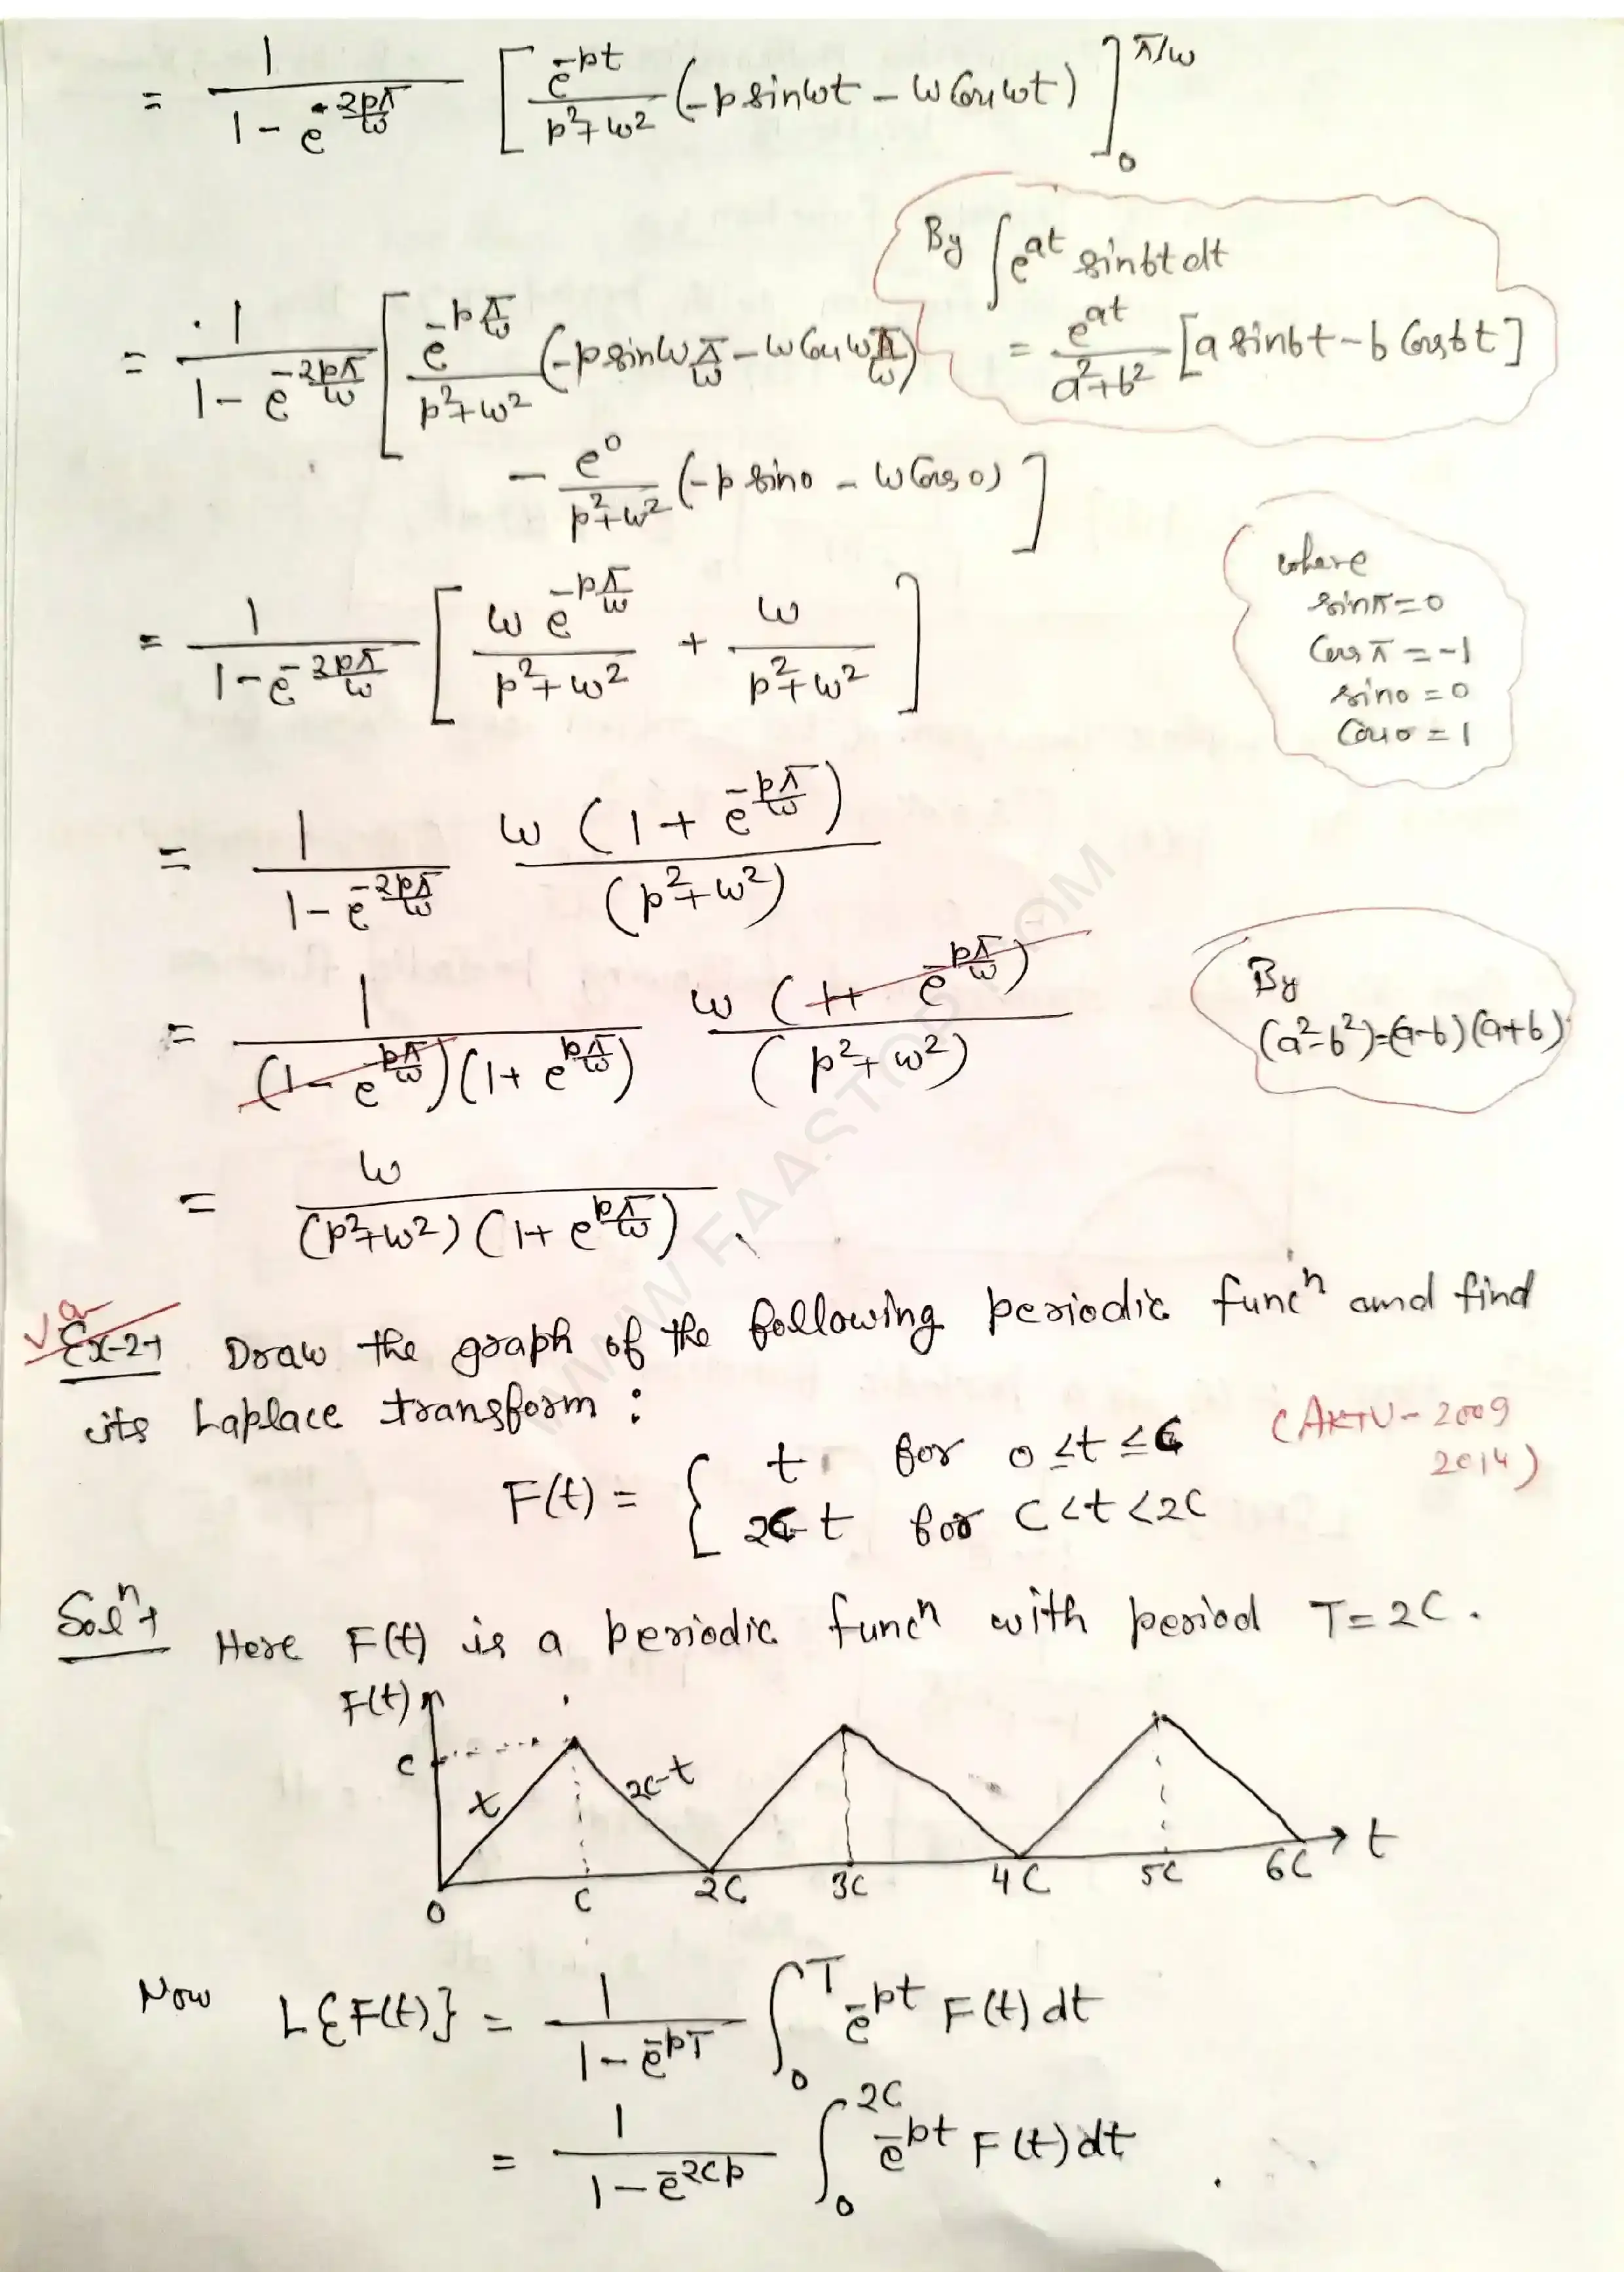 = 1/(1 - e^(-2pπ/ω)) [ e^(-pt)/(p²+ω²) (-p sinωt - ω Cos ωt) ]_0^(π/ω)
By ∫ e^(at) sinbt dt
= e^(at)/(a²+b²) [a sinbt - b Cosbt]
= 1/(1 - e^(-2pπ/ω)) [ e^(-pπ/ω)/(p²+ω²) (-p sinω π/ω - ω Cos ω π/ω)
- e^0/(p²+ω²) (-p sin0 - ω Cos 0) ]
where
sinπ = 0
Cos π = -1
sin0 = 0
Cos 0 = 1
= 1/(1 - e^(-2pπ/ω)) [ ω e^(-pπ/ω)/(p²+ω²) + ω/(p²+ω²) ]
= 1/(1 - e^(-2pπ/ω)) ω (1 + e^(-pπ/ω))/(p²+ω²)
= 1/((1 - e^(pπ/ω)) (1 + e^(pπ/ω))) ω (1 + e^(-pπ/ω))/(p²+ω²)
By
(a²-b²)=(a-b)(a+b)
= ω/((p²+ω²) (1 + e^(pπ/ω))).
Ex-2→ Draw the graph of the following periodic funcⁿ and find
its Laplace transform :
(AKTU - 2009
2014)
F(t) = { t for 0 ≤ t ≤ C
2C-t for C < t < 2C
Solⁿ→ Here F(t) is a periodic funcⁿ with period T = 2C.
F(t)
c
t 2C-t
0 C 2C 3C 4C 5C 6C t
Now L{F(t)} = 1/(1 - e^(-pT)) ∫_0^T e^(-pt) F(t) dt
= 1/(1 - e^(-2Cp)) ∫_0^(2C) e^(-pt) F(t) dt